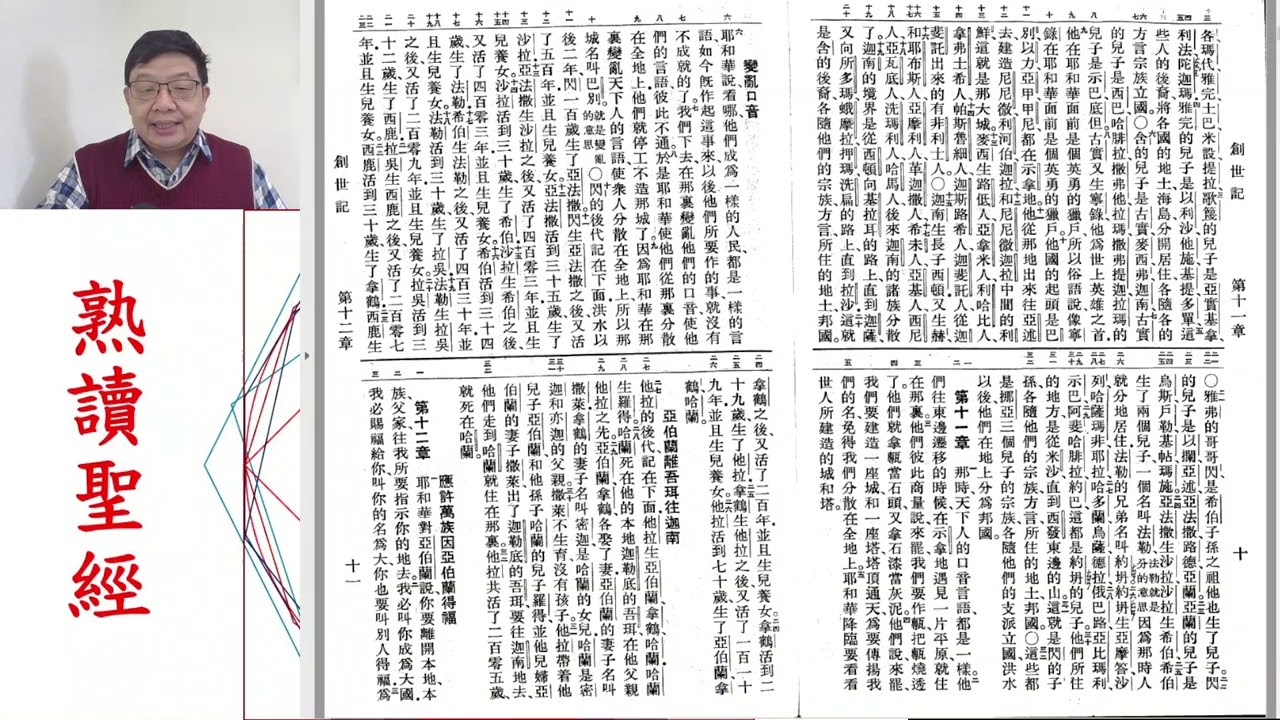 熟讀聖經
創世記
第十一章
十
各、瑪代、雅完、土巴、米設、提拉、歌篾的兒子是亞實基拿、
利法、陀迦瑪、雅完的兒子是以利沙、他施、基提、多單、這
些人的後裔將各國的地土、海島、分開居住、各隨各的
方言、宗族立國。○含的兒子是古實、麥西、弗、迦南、古實的
兒子是示巴、
他在耶和華面前是個英勇的獵戶、所以俗語說像寧
錄在耶和華面前是個英勇的獵戶、他國的起頭是巴
別、以力、亞甲、甲尼、都在示拿地、他從那地出來往亞述
去、建造尼尼微、利河伯、迦拉、和尼尼微、迦拉中間的利
鮮、這就是那大城。麥西生路低人、亞拿米人、利哈比人、
拿弗土希人、帕斯魯細人、迦斯路希人、迦斐託人、從迦
斐託出來的有非利士人。○迦南生長子西頓、又生赫
和耶布斯人、亞摩利人、革迦撒人、希未人、亞基人、西尼
人、亞瓦底人、洗瑪利人、哈馬人、後來迦南的諸族分散
了。迦南的境界是從西頓向基拉耳的路上、直到迦薩、
又向所多瑪、蛾摩拉、押瑪、洗扁的路上、直到拉沙。這就
是含的後裔、各隨他們的宗族、方言、所住的地土、邦國。
○雅弗的哥哥閃、是希伯子孫之祖、他也生了兒子。閃
的兒子是以攔、亞述、亞法撒、路德、亞蘭。亞蘭的兒子是
烏斯、戶勒、基帖、瑪施。亞法撒生沙拉、沙拉生希伯。希伯
生了兩個兒子、一個名叫法勒、因為那時人
就分地居住、法勒的兄弟名叫約坍。約坍生亞摩答、沙
列、哈薩瑪非、耶拉、哈多蘭、烏薩、德拉、俄巴路、亞比瑪利、
示巴、阿斐、哈腓拉、約巴、這都是約坍的兒子。他們所住
的地方是從米沙直到西發東邊的山。這就是閃的子
孫、各隨他們的宗族、方言、所住的地土、邦國。○這些都
是挪亞三個兒子的宗族、各隨他們的支派立國、洪水
以後、他們在地上分為邦國。
第十一章 那時、天下人的口音言語、都是一樣。他
們往東邊遷移的時候、在示拿地遇見一片平原、就住
在那裏。他們彼此商量說、來罷、我們要作甎、把甎燒透
了。他們就拿甎當石頭、又拿石漆當灰泥。他們說、來罷、
我們要建造一座城、和一座塔、塔頂通天、為要傳揚我
們的名、免得我們分散在全地上。耶和華降臨要看看
世人所建造的城和塔。
創世記
第十二章
十一
變亂口音
耶和華說、看哪、他們成為一樣的人民、都是一樣的言
語、如今既作起這事來、以後他們所要作的事、就沒有
不成就的了。我們下去、在那裏變亂他們的口音、使他
們的言語、彼此不通。於是耶和華使他們從那裏分散
在全地上。他們就停工、不造那城了。因為耶和華在那
裏變亂天下人的言語、使眾人分散在全地上、所以那
城名叫巴別。就是變亂的意思○閃的後代、記在下面。洪水以
後二年、閃一百歲生了亞法撒。閃生亞法撒之後、又活
了五百年、並且生兒養女。亞法撒活到三十五歲、生了
沙拉。亞法撒生沙拉之後、又活了四百零三年、並且生
兒養女。沙拉活到三十歲、生了希伯。沙拉生希伯之後、
又活了四百零三年、並且生兒養女。希伯活到三十四
歲、生了法勒。希伯生法勒之後、又活了四百三十年、並
且生兒養女。法勒活到三十歲、生了拉吳。法勒生拉吳
之後、又活了二百零九年、並且生兒養女。拉吳活到三
十二歲、生了西鹿。拉吳生西鹿之後、又活了二百零七
年、並且生兒養女。西鹿活到三十歲、生了拿鶴。西鹿生
拿鶴之後、又活了二百年、並且生兒養女。拿鶴活到二
十九歲、生了他拉。拿鶴生他拉之後、又活了一百一十
九年、並且生兒養女。他拉活到七十歲、生了亞伯蘭、拿
鶴、哈蘭。
亞伯蘭離吾珥往迦南
他拉的後代、記在下面。他拉生亞伯蘭、拿鶴、哈蘭。哈蘭
生羅得。哈蘭死在他的本地迦勒底的吾珥、在他父親
他拉之先。亞伯蘭、拿鶴、各娶了妻。亞伯蘭的妻子名叫
撒萊。拿鶴的妻子名叫密迦、是哈蘭的女兒。哈蘭是密
迦和亦迦的父親。撒萊不生育、沒有孩子。他拉帶着他
兒子亞伯蘭、和他孫子哈蘭的兒子羅得、並他兒婦亞
伯蘭的妻子撒萊、出了迦勒底的吾珥、要往迦南地去、
他們走到哈蘭、就住在那裏。他拉共活了二百零五歲、
就死在哈蘭。
第十二章 應許萬族因亞伯蘭得福
耶和華對亞伯蘭說、你要離開本地、本
族、父家、往我所要指示你的地去。我必叫你成為大國、
我必賜福給你、叫你的名為大、你也要叫別人得福。為